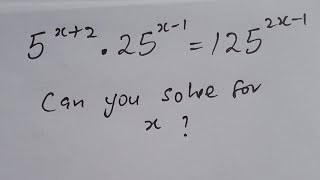 5^{x+2} · 25^{x-1} = 125^{2x-1}
Can you solve for
x ?